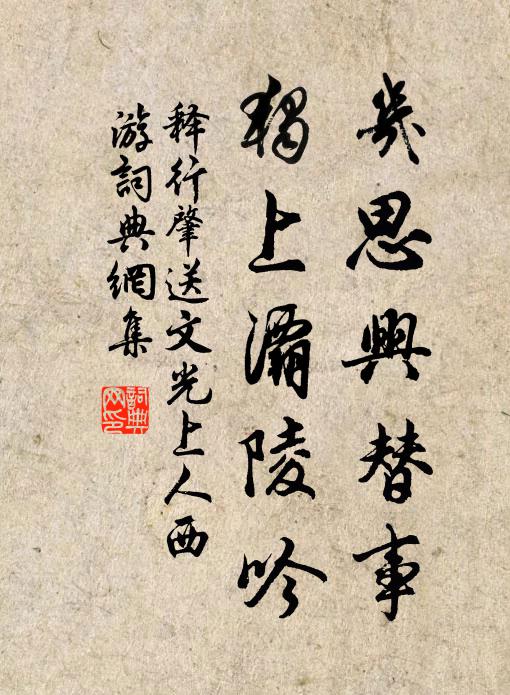 幾思興替事
獨上灞陵吟
释行肇送文光上人西
游詞典網集
詞典
网印